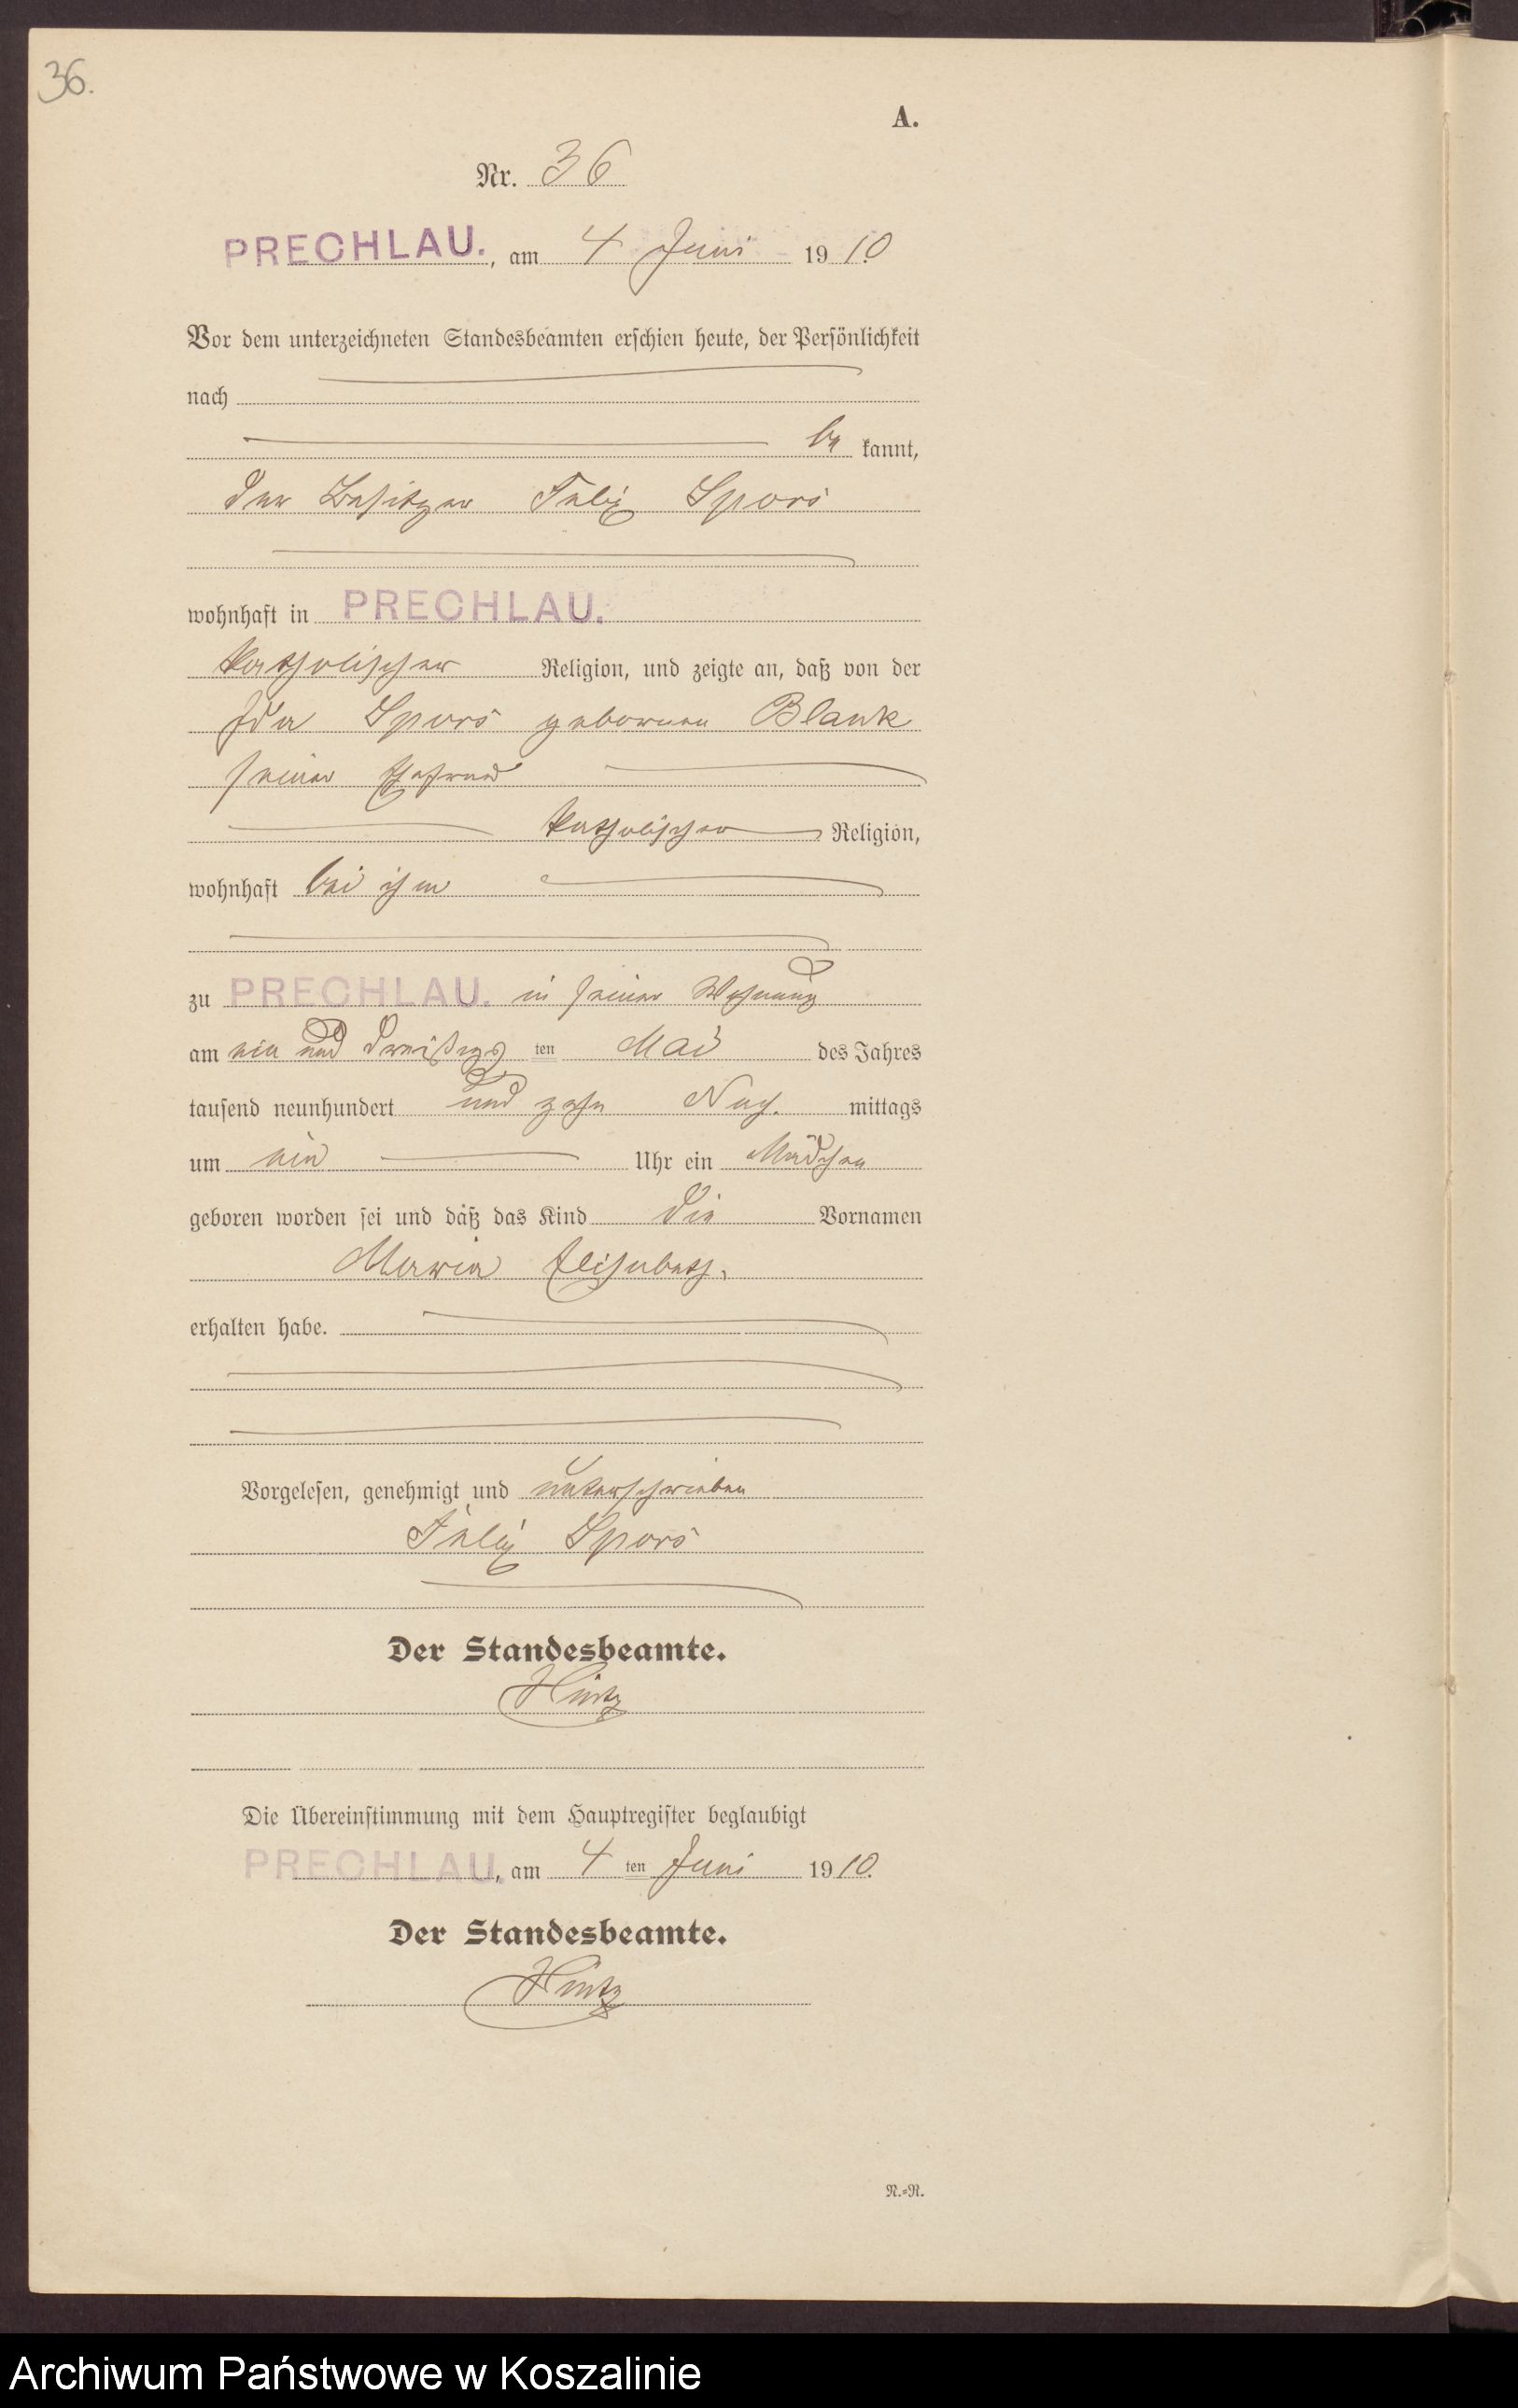 36.
A.
Nr. 36
PRECHLAU., am 4 Juni 1910
Vor dem unterzeichneten Standesbeamten erschien heute, der Persönlichkeit
nach
be kannt,
der Besitzer Felix Spors
wohnhaft in PRECHLAU.
katholischer Religion, und zeigte an, daß von der
Ida Spors geborenen Blank
seiner Ehefrau
katholischer Religion,
wohnhaft bei ihm
zu PRECHLAU. in seiner Wohnung
am ein und dreißigs ten Mai des Jahres
tausend neunhundert und zehn Nach mittags
um ein Uhr ein Mädchen
geboren worden sei und daß das Kind die Vornamen
Maria Elisabeth.
erhalten habe.
Vorgelesen, genehmigt und unterschrieben
Felix Spors
Der Standesbeamte.
Hintz
Die Übereinstimmung mit dem Hauptregister beglaubigt
PRECHLAU., am 4 ten Juni 1910.
Der Standesbeamte.
Hintz
N.=N.
Archiwum Państwowe w Koszalinie